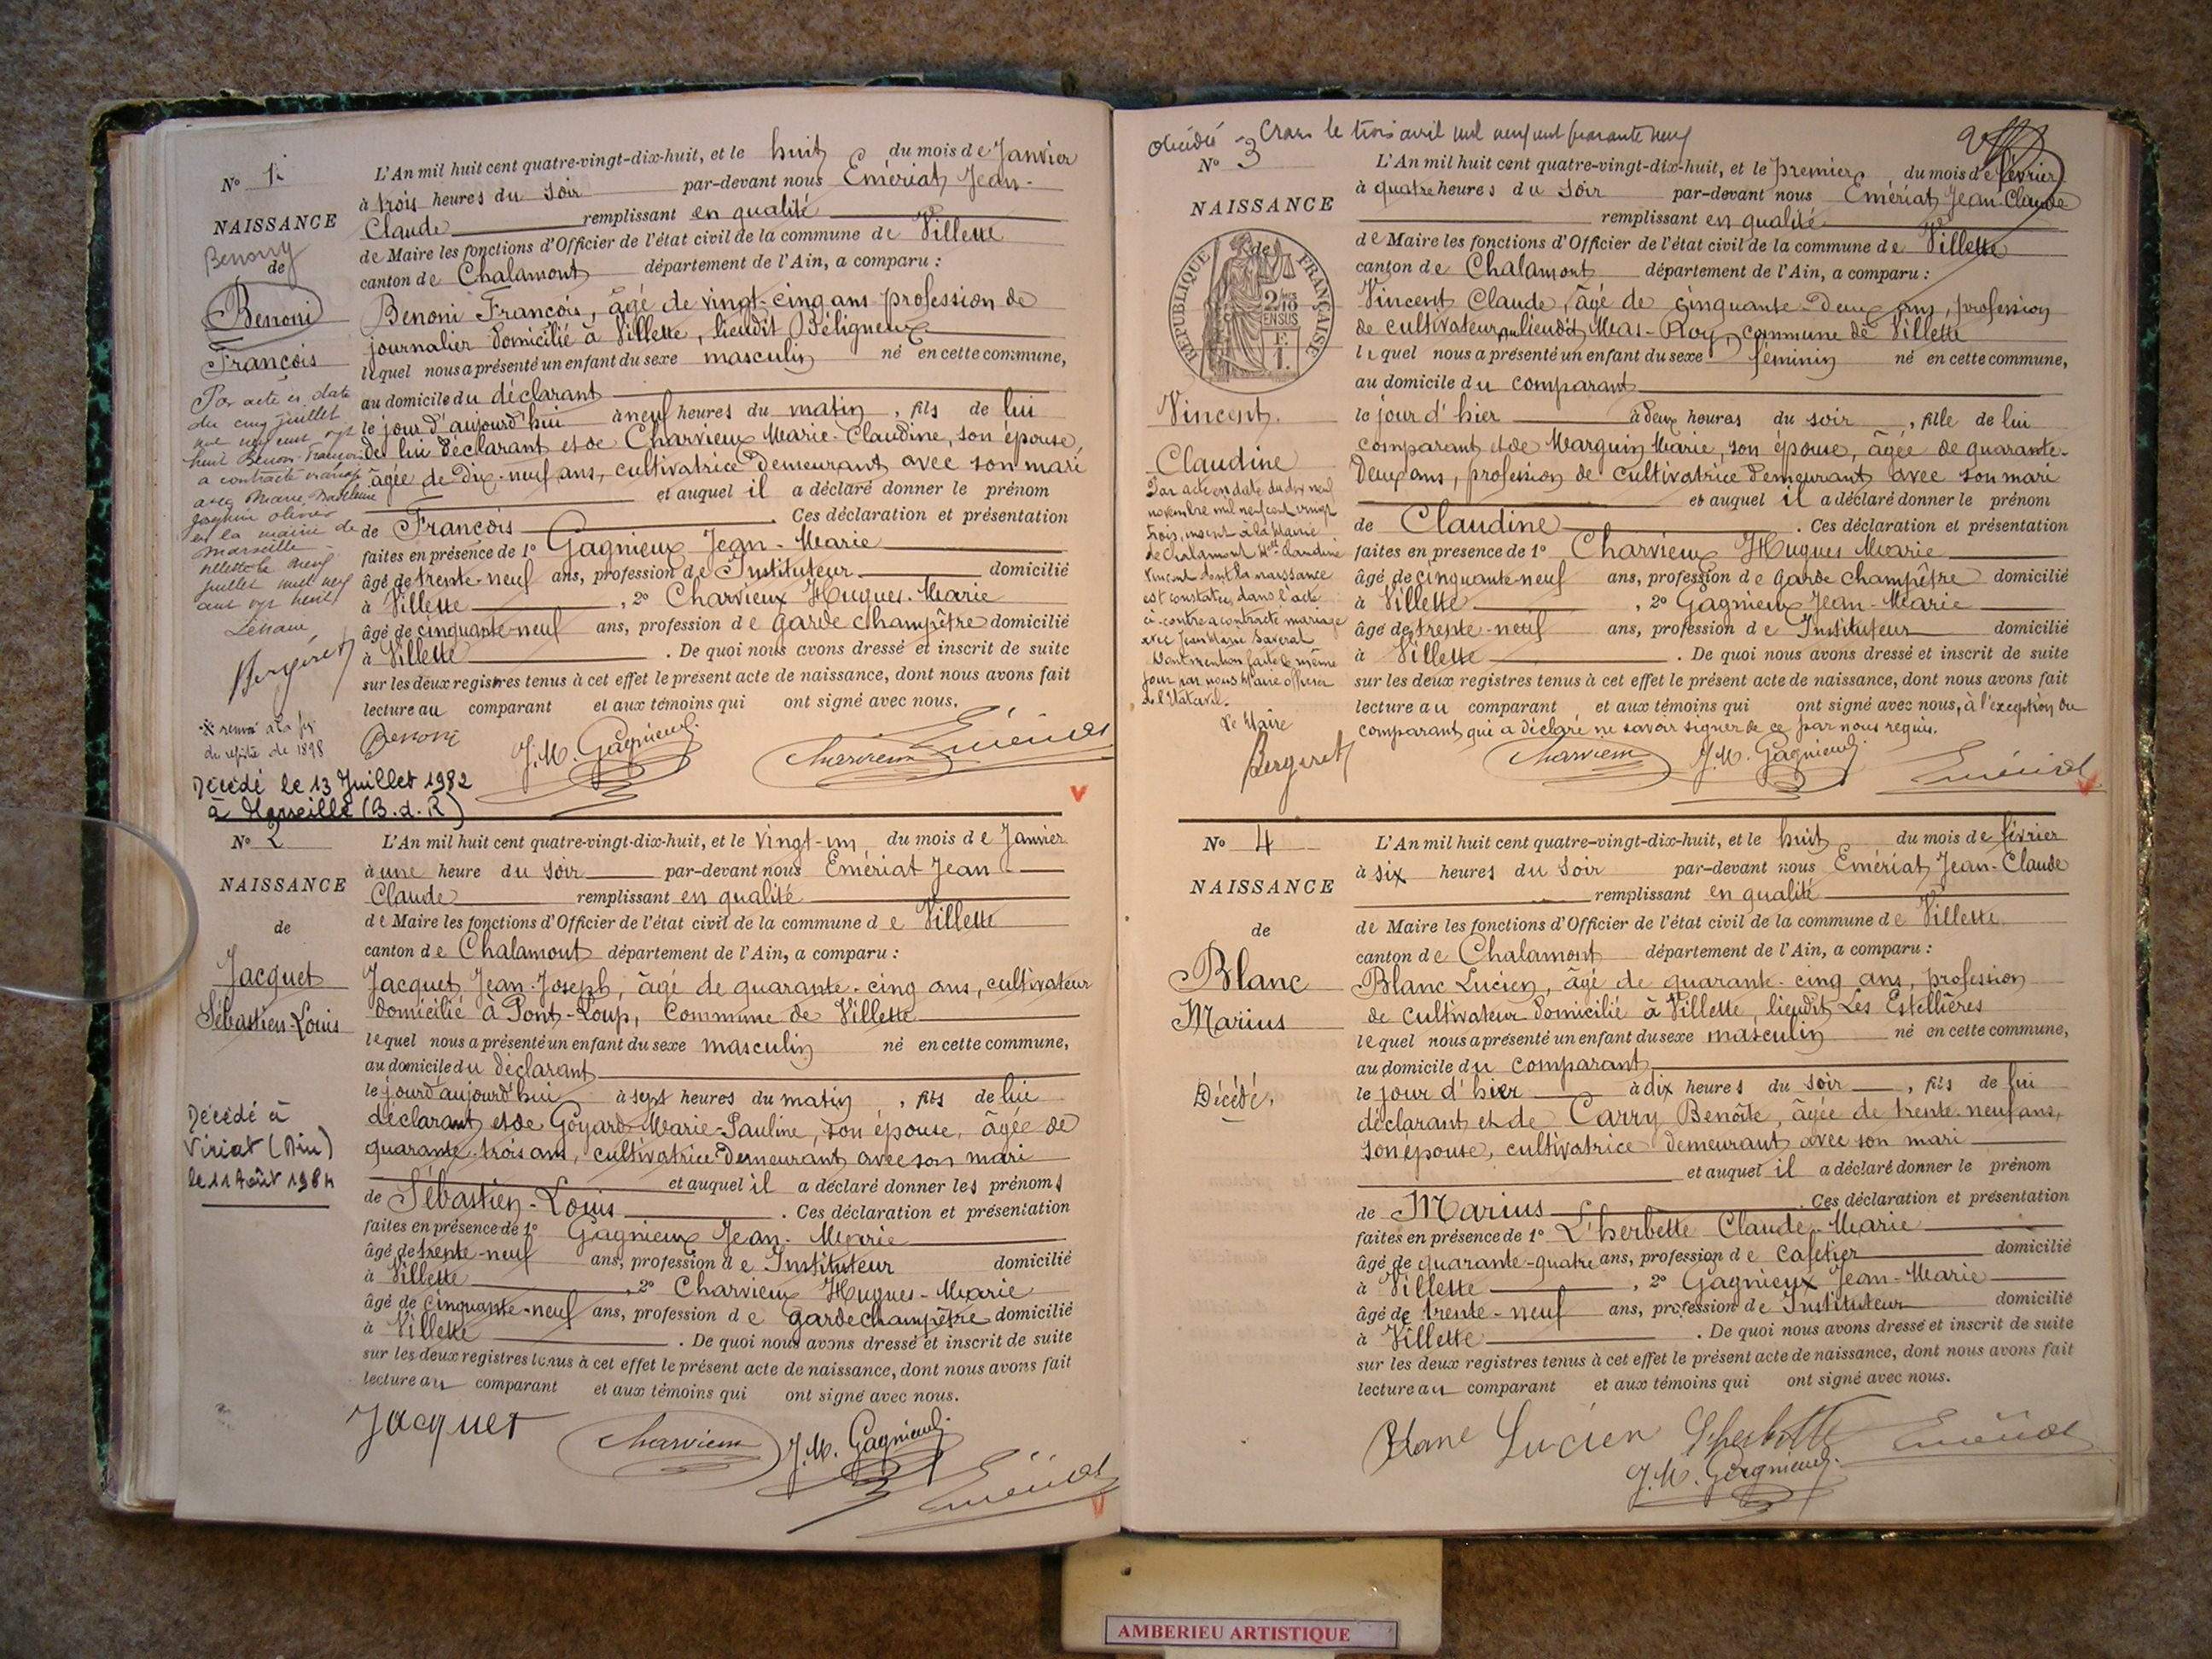 N° 1.
NAISSANCE
Benony
de
Benoni
François
Par acte en date
du cinq juillet
mil neuf cent vgt
huit Benoni François
a contracté mariage
avec Marie
en la mairie de
Marseille
Villette le neuf
juillet mil neuf
cent vgt huit
Bergeret
de 1898
Décédé le 13 Juillet 1982
à Marseille (B.d.R)
L'An mil huit cent quatre-vingt-dix-huit, et le huit du mois de Janvier
à trois heures du soir par-devant nous Emériat Jean-
Claude remplissant en qualité
de Maire les fonctions d'Officier de l'état civil de la commune de Villette
canton de Chalamont département de l'Ain, a comparu :
Benoni François, âgé de vingt-cinq ans profession de
journalier domicilié à Villette, lieudit Béligneux
lequel nous a présenté un enfant du sexe masculin né en cette commune,
au domicile du déclarant
le jour d'aujourd'hui à neuf heures du matin, fils de lui
de lui déclarant et de Charvieux Marie-Claudine, son épouse,
âgée de dix-neuf ans, cultivatrice demeurant avec son mari
et auquel il a déclaré donner le prénom
de François. Ces déclaration et présentation
faites en présence de 1° Gagnieux Jean-Marie
âgé de trente-neuf ans, profession de Instituteur domicilié
à Villette, 2° Charvieux Hugues-Marie
âgé de cinquante-neuf ans, profession de garde champêtre domicilié
à Villette. De quoi nous avons dressé et inscrit de suite
sur les deux registres tenus à cet effet le présent acte de naissance, dont nous avons fait
lecture au comparant et aux témoins qui ont signé avec nous.
Benoni J.M. Gagnieux Charvieux Emériat
V
N° 2
NAISSANCE
de
Jacquet
Sébastien-Louis
Décédé à
Viriat (Ain)
le 11 Août 1984
L'An mil huit cent quatre-vingt-dix-huit, et le vingt-un du mois de Janvier
à une heure du soir par-devant nous Emériat Jean
Claude remplissant en qualité
de Maire les fonctions d'Officier de l'état civil de la commune de Villette
canton de Chalamont département de l'Ain, a comparu :
Jacquet Jean-Joseph, âgé de quarante-cinq ans, cultivateur
domicilié à Pont-Loup, Commune de Villette
lequel nous a présenté un enfant du sexe masculin né en cette commune,
au domicile du déclarant
le jour d'aujourd'hui à sept heures du matin, fils de lui
déclarant et de Goyard Marie-Pauline, son épouse, âgée de
quarante-trois ans, cultivatrice demeurant avec son mari
et auquel il a déclaré donner les prénoms
de Sébastien-Louis. Ces déclaration et présentation
faites en présence de 1° Gagnieux Jean-Marie
âgé de trente-neuf ans, profession de Instituteur domicilié
à Villette, 2° Charvieux Hugues-Marie
âgé de cinquante-neuf ans, profession de garde champêtre domicilié
à Villette. De quoi nous avons dressé et inscrit de suite
sur les deux registres tenus à cet effet le présent acte de naissance, dont nous avons fait
lecture au comparant et aux témoins qui ont signé avec nous.
Jacquet Charvieux J.M. Gagnieux
Emériat
V
décédé à Crans le trois avril mil neuf cent quarante neuf
N° 3
NAISSANCE
de
RÉPUBLIQUE FRANÇAISE
2/10 EN SUS
F. 1.
Vincent.
Claudine
Par acte en date du dix neuf
novembre mil neuf cent vingt
trois, inscrit à la Mairie
de Chalamont Melle Claudine
Vincent dont la naissance
est constatée dans l'acte
ci-contre a contracté mariage
avec Jean Marie Saverat
Dont mention faite le même
jour par nous Maire officier
de l'Etat civil.
Le Maire
Bergeret
L'An mil huit cent quatre-vingt-dix-huit, et le premier du mois de février
à quatre heures du soir par-devant nous Emériat Jean-Claude
remplissant en qualité
de Maire les fonctions d'Officier de l'état civil de la commune de Villette
canton de Chalamont département de l'Ain, a comparu :
Vincent Claude, âgé de cinquante-deux ans, profession
de cultivateur, au lieudit Mas-Roy, commune de Villette
lequel nous a présenté un enfant du sexe féminin né en cette commune,
au domicile du comparant
le jour d'hier à deux heures du soir, fille de lui
comparant et de Marguin Marie, son épouse, âgée de quarante-
deux ans, profession de cultivatrice demeurant avec son mari
et auquel il a déclaré donner le prénom
de Claudine. Ces déclaration et présentation
faites en présence de 1° Charvieux Hugues Marie
âgé de cinquante-neuf ans, profession de garde champêtre domicilié
à Villette, 2° Gagnieux Jean-Marie
âgé de trente-neuf ans, profession de Instituteur domicilié
à Villette. De quoi nous avons dressé et inscrit de suite
sur les deux registres tenus à cet effet le présent acte de naissance, dont nous avons fait
lecture au comparant et aux témoins qui ont signé avec nous, à l'exception du
comparant qui a déclaré ne savoir signer de ce par nous requis.
Charvieux J.M. Gagnieux Emériat
V
N° 4
NAISSANCE
de
Blanc
Marius
Décédé.
L'An mil huit cent quatre-vingt-dix-huit, et le huit du mois de février
à six heures du soir par-devant nous Emériat Jean-Claude
remplissant en qualité
de Maire les fonctions d'Officier de l'état civil de la commune de Villette.
canton de Chalamont département de l'Ain, a comparu :
Blanc Lucien, âgé de quarante-cinq ans, profession
de cultivateur domicilié à Villette, lieudit Les Estellières
lequel nous a présenté un enfant du sexe masculin né en cette commune,
au domicile du comparant
le jour d'hier à dix heures du soir, fils de lui
déclarant et de Carry Benoîte, âgée de trente-neuf ans,
son épouse, cultivatrice demeurant avec son mari
et auquel il a déclaré donner le prénom
de Marius. Ces déclaration et présentation
faites en présence de 1° L'herbette Claude-Marie
âgé de quarante-quatre ans, profession de cafetier domicilié
à Villette, 2° Gagnieux Jean-Marie
âgé de trente-neuf ans, profession de Instituteur domicilié
à Villette. De quoi nous avons dressé et inscrit de suite
sur les deux registres tenus à cet effet le présent acte de naissance, dont nous avons fait
lecture au comparant et aux témoins qui ont signé avec nous.
Blanc Lucien L'herbette Emériat
J.M. Gagnieux
AMBERIEU ARTISTIQUE